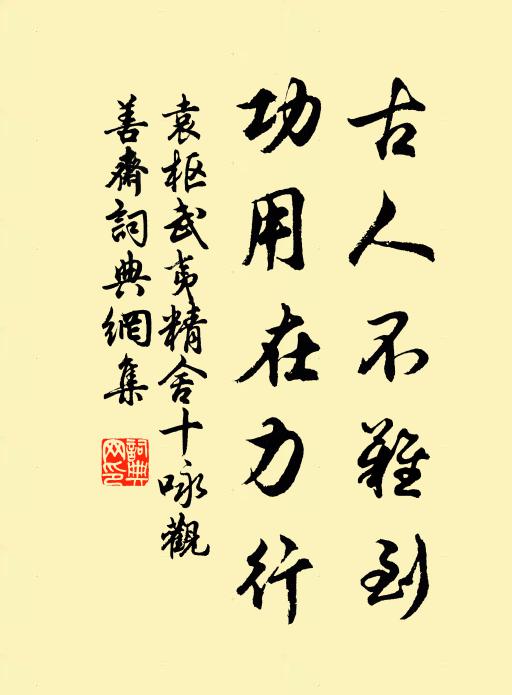 古人不難到
功用在力行
袁枢武夷精舍十咏觀
善齋詞典網集
詞典
网印